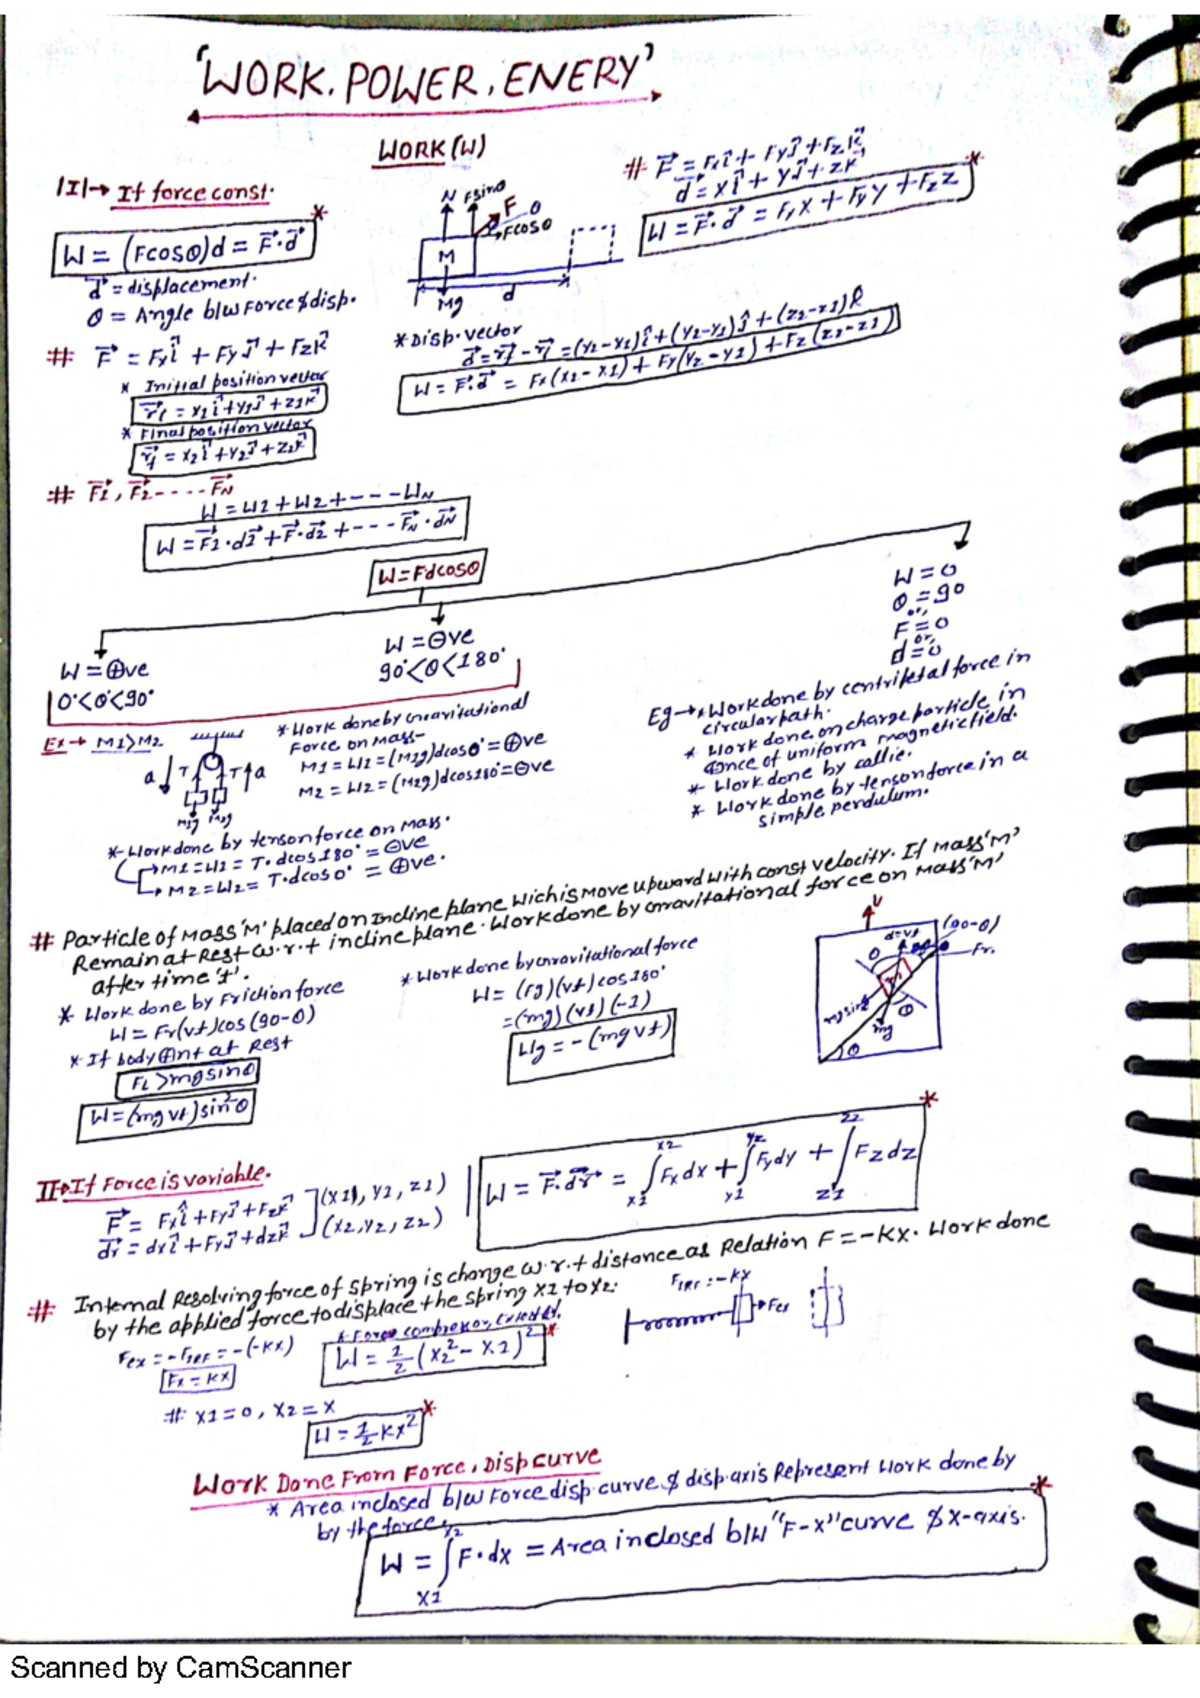 'WORK, POWER, ENERY'
WORK (W)
|I|→ If force const.
W = (Fcosθ)d = F⃗·d⃗
d⃗ = displacement.
θ = Angle b/w Force & disp.
N Fsinθ
F θ
Fcosθ
M
d
Mg
# F⃗ = Fxî + Fyĵ + Fzk̂
d⃗ = xî + yĵ + zk̂
W = F⃗·d⃗ = FxX + FyY + FzZ
# F⃗ = Fxî + Fyĵ + Fzk̂
* Initial position vector
r⃗i = x1î + y1ĵ + z1k̂
* Final position vector
r⃗f = x2î + y2ĵ + z2k̂
* Disp. vector
d⃗ = r⃗f - r⃗i = (x2-x1)î + (y2-y1)ĵ + (z2-z1)k̂
W = F⃗·d⃗ = Fx(x2-x1) + Fy(y2-y1) + Fz(z2-z1)
# F⃗1, F⃗2 ---- F⃗N
W = W1 + W2 + --- WN
W = F⃗1·d⃗1 + F⃗·d⃗2 + --- F⃗N·d⃗N
W = Fdcosθ
W = ⊕ve
0°<θ<90°
W = ⊖ve
90°<θ<180°
W = 0
θ = 90
or,
F = 0
or,
d = 0
Ex→ M1>M2
a T T a
M1g M2g
* Work done by Gravitational
Force on mass-
M1 = W1 = (M1g)dcos0° = ⊕ve
M2 = W2 = (M2g)dcos180° = ⊖ve
Eg→ * Work done by centripetal force in
circular path.
* Work done on charge particle in
of uniform magnetic field.
* Work done by collie.
* Work done by tension force in a
simple pendulum.
* Work done by tension force on mass.
→ M1 = W1 = T·dcos180° = ⊖ve
→ M2 = W2 = T·dcos0° = ⊕ve.
# Particle of Mass 'M' placed on Incline plane Wich is move upward with const velocity. If mass 'M'
Remain at Rest w.r.t incline plane. Work done by Gravitational force on Mass 'M'
after time 't'.
* Work done by Friction force
W = Fr(vt)cos(90-θ)
* If body ⊕nt at Rest
FL > mgsinθ
W = (mgvt)sin²θ
* Work done by Gravitational force
W = (Fg)(vt)cos180°
= (mg)(vt)(-1)
Wg = -(mgvt)
V
d=vt (90-θ)
θ Fr.
mgsinθ
mg θ
θ
II→ If Force is variable.
F⃗ = Fxî + Fyĵ + Fzk̂ ](x1, y1, z1)
d⃗r = dxî + Fyĵ + dzk̂ (x2, y2, z2)
W = F⃗·d⃗r = ∫x1 x2 Fxdx + ∫y1 y2 Fydy + ∫z1 z2 Fzdz
# Internal Resolving force of Spring is change w.r.t distance as Relation F = -Kx. Work done
by the applied force to displace the spring x1 to x2.
Fex = -FIRF = -(-Kx)
Fx = Kx
W = 1/2 (x2² - x2)²
FIRF = -Kx
Fex
# x1 = 0, x2 = x
W = 1/2 Kx²
Work Done From Force, Disp curve
* Area inclosed b/w Force disp. curve & disp. axis Represent work done by
by the force.
W = ∫x1 x2 F·dx = Area inclosed b/w "F-x" curve & x-axis.
Scanned by CamScanner